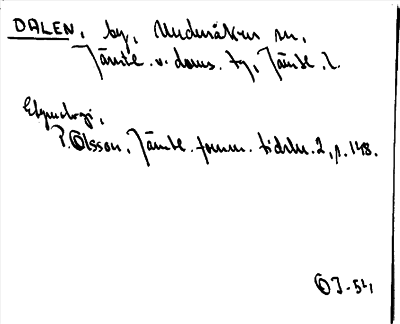 DALEN, by, Undersåkers sn,
Jämtl. v. doms. tg, Jämtl. l.
Etymologi,
P. Olsson, Jämtl. fornm. tidskr. 2, p. 148.
OJ-54